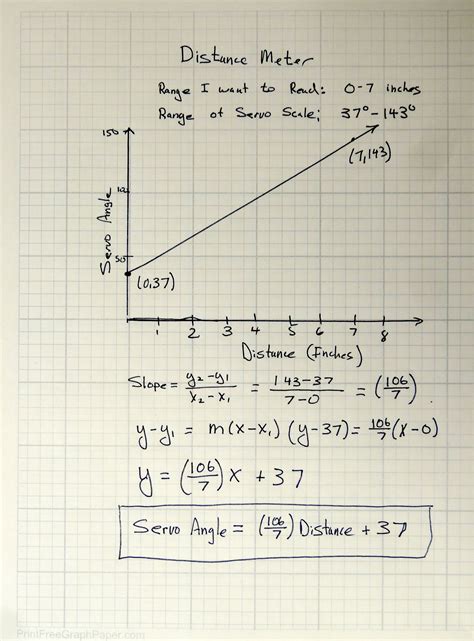 Distance Meter
Range I want to Read: 0-7 inches
Range of Servo Scale; 37° - 143°
150
(7,143)
10
Servo Angle
50
(0,37)
1 2 3 4 5 6 7 8
Distance (Inches)
Slope = y₂-y₁ / x₂-x₁ = 143-37 / 7-0 = (106/7)
y-y₁ = m(x-x₁) (y-37) = 106/7 (x-0)
y = (106/7) x + 37
Servo Angle = (106/7) Distance + 37
PrintFreeGraphPaper.com